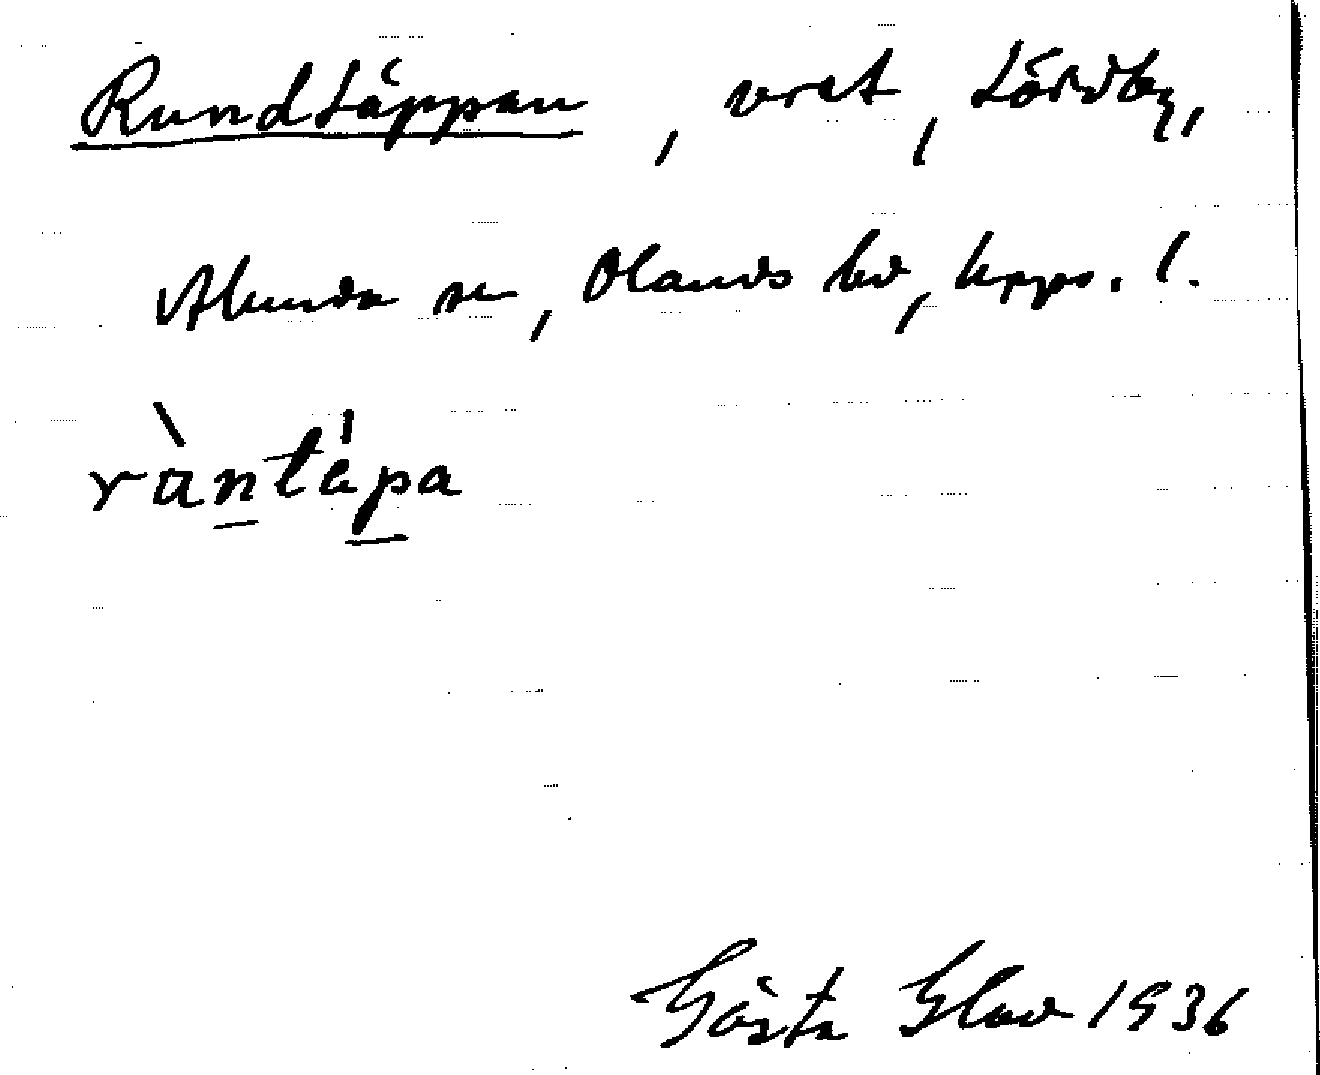 Rundtäppan, vret, Lördby,
Alunda sn, Olands hd, Upps. l.
ràntépa
Gösta Glad 1936